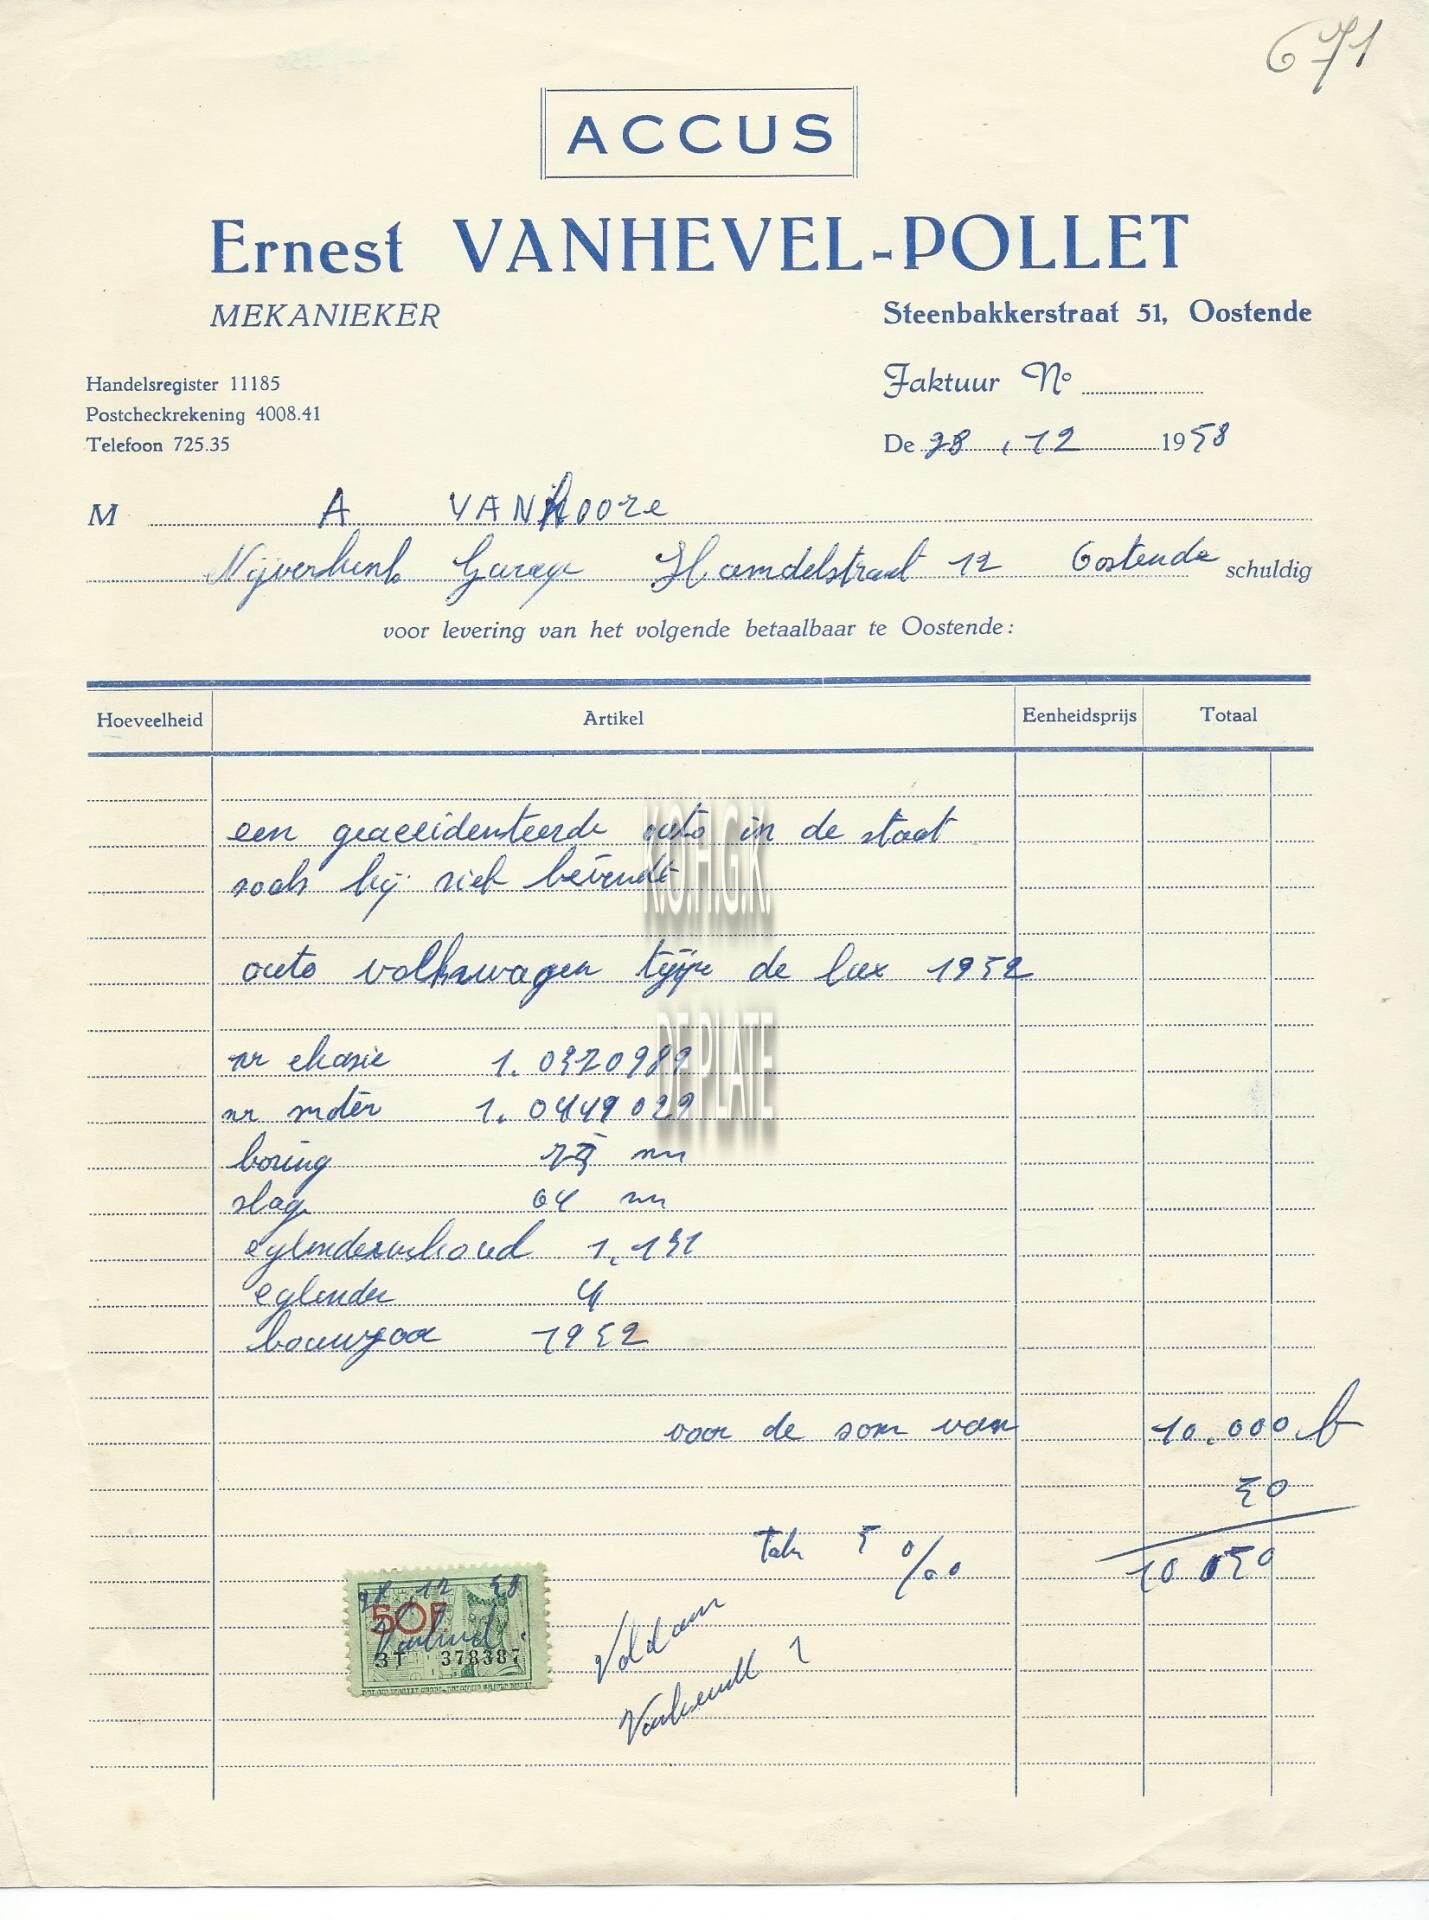 671
ACCUS
Ernest VANHEVEL-POLLET
MEKANIEKER
Steenbakkerstraat 51, Oostende
Handelsregister 11185
Postcheckrekening 4008.41
Telefoon 725.35
Faktuur No
De 28 . 12 1958
M A VANHOORE
Garage Handelstraat 12 Oostende schuldig
voor levering van het volgende betaalbaar te Oostende :
Hoeveelheid Artikel Eenheidsprijs Totaal
een geaccidenteerde auto in de staat
zoals hij zich bevindt
K.O.H.G.K.
auto volkswagen type de lux 1952
DE PLATE
nr chasie 1.0320989
nr motor 1.0449029
boring mm
slag 64 mm
cylinderinhoud 1.131
cylinder 4
bouwjaar 1952
voor de som van 10.000 b
50
taks 5 o/oo 10 050
28 12 58
50F
3T 378387
Voldaan